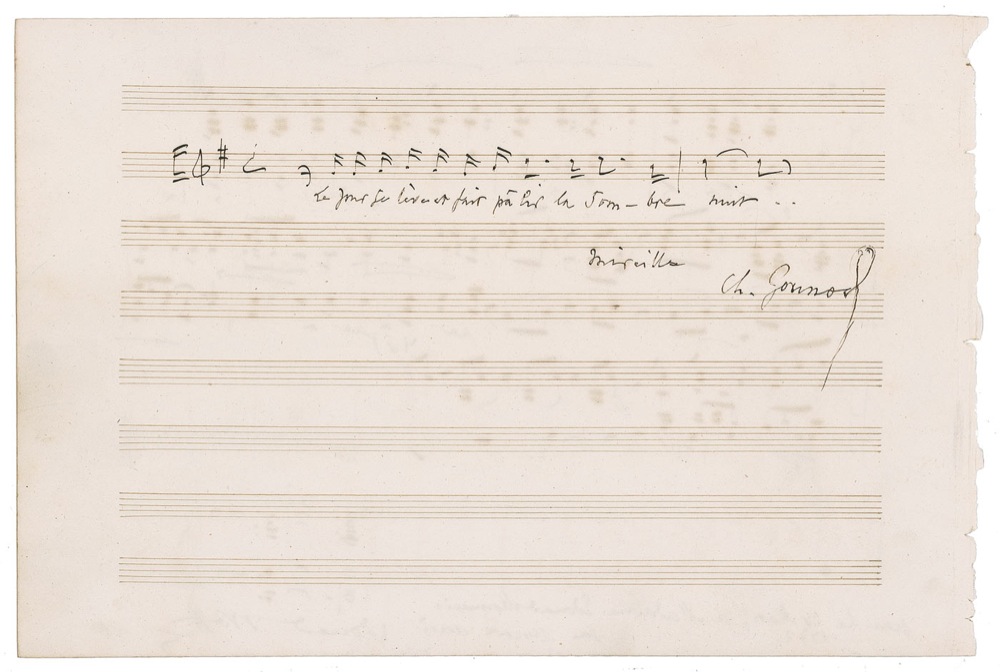 Le jour se lève et fait pâlir la som-bre nuit . .
Mireille
Ch. Gounod